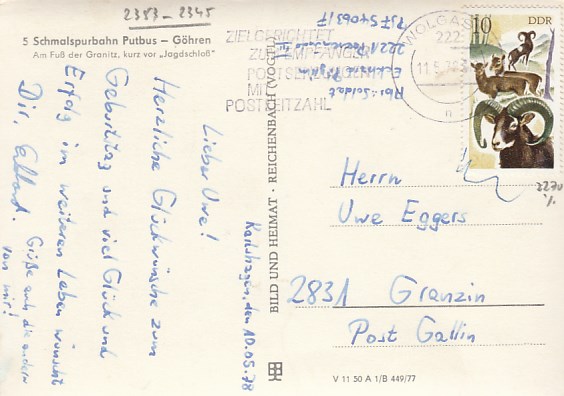 2353 - 2345
5 Schmalspurbahn Putbus – Göhren
Am Fuß der Granitz, kurz vor „Jagdschloß"
Karlshagen, den 10.05.78
Lieber Uwe!
Herzliche Glückwünsche zum
Geburtstag und viel Glück und
Erfolg im weiteren Leben wünscht
Dir, Grüße auch die andern
von mir!
BILD UND HEIMAT · REICHENBACH (VOGTL)
ZIELGERICHTET
ZUM EMPFÄNGER
MIT
POSTLEITZAHL
WOLGAST
222
11.5.78
a
Soldat
2221
PSF 54063/F
10
DDR
2270
Herrn
Uwe Eggers
2831 Granzin
Post Gallin
V 11 50 A 1/B 449/77